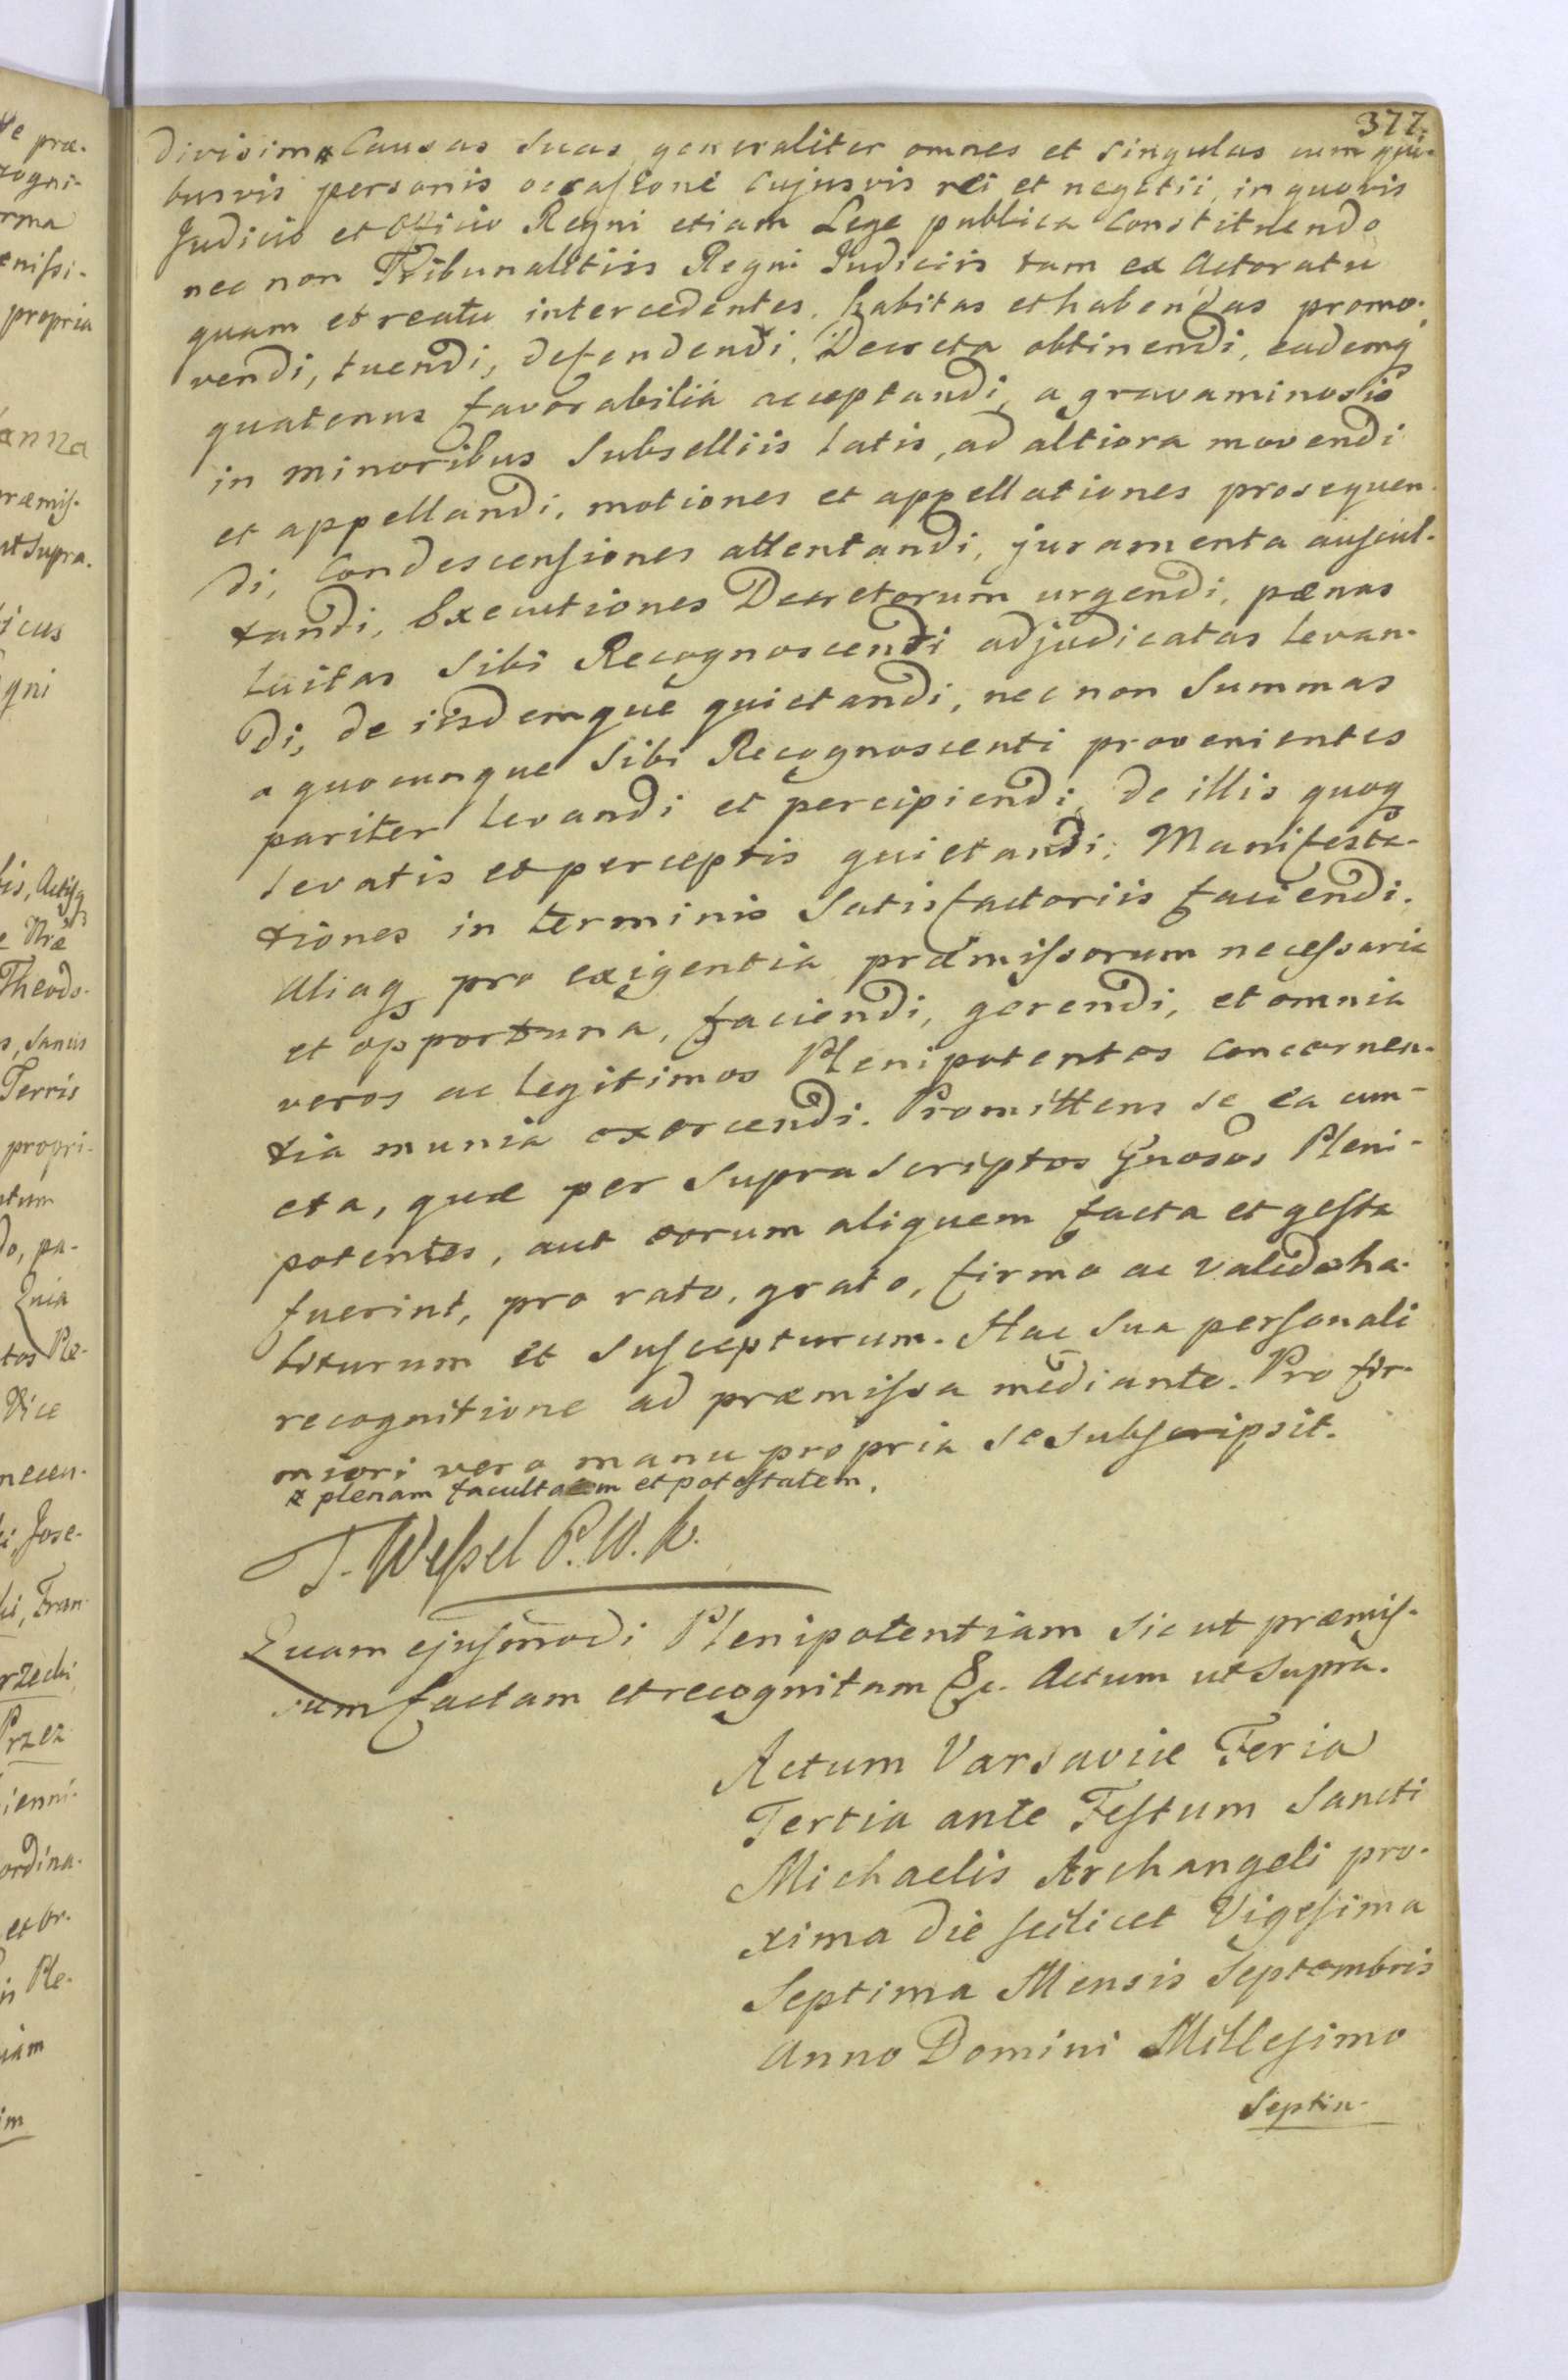 377.
divisim x Causas suas generaliter omnes et singulas cum qui-
busvis personis occasione cujusvis rei et negotii, in quovis
Judicio et Officio Regni etiam Lege publica Constituendo
nec non Tribunalitiis Regni Judiciis tam ex Actoratu
quam et reatu intercedentes, habitas et habendas promo-
vendi, tuendi, defendendi, Decreta obtinendi, eademq
quatenus favorabilia acceptandi, a gravaminosis
in minoribus Subselliis latis, ad altiora movendi
et appellandi, motiones et appellationes prosequen-
di, Condescensiones attentandi, juramenta auscul-
tandi, Executiones Decretorum urgendi, pænas
luitas sibi Recognoscendi adjudicatas levan-
di, de iisdemque quietandi, nec non Summas
a quocunque Sibi Recognoscenti provenientes
pariter levandi et percipiendi, de illis quoq
levatis et perceptis quietandi, Manifesta-
tiones in terminis Satisfactoriis faciendi.
aliaq pro exigentia præmissorum necessaria
et opportuna, faciendi, gerendi, et omnia
veros ac legitimos Plenipotentes concernen-
tia munia exercendi. Promittens se ea cun-
cta, quæ per suprascriptos Gnosos Pleni-
potentes, aut eorum aliquem facta et gesta
fuerint, pro rato, grato, firmo ac valido ha-
biturum et suscepturum. Hac sua personali
recognitione ad præmissa mediante. Pro fir-
miori vero manu propria se subscripsit.
x plenam facultatem et potestatem.
T. Wessel P. W. K.
Quam ejusmodi Plenipotentiam sic ut præmis-
sum factam et recognitam &c. Actum ut supra.
Actum Varsaviæ Feria
Tertia ante Festum Sancti
Michaelis Archangeli pro-
xima die scilicet Vigesima
Septima Mensis Septembris
Anno Domini Millesimo
Septin-